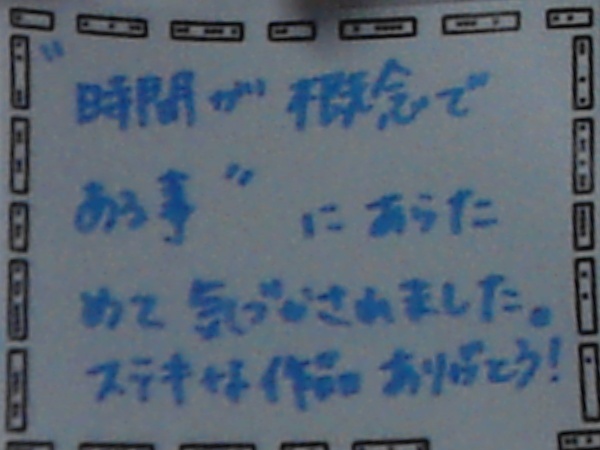 "時間が 概念で
ある事" にあらた
めて 気づかされました。
ステキな作品 ありがとう!